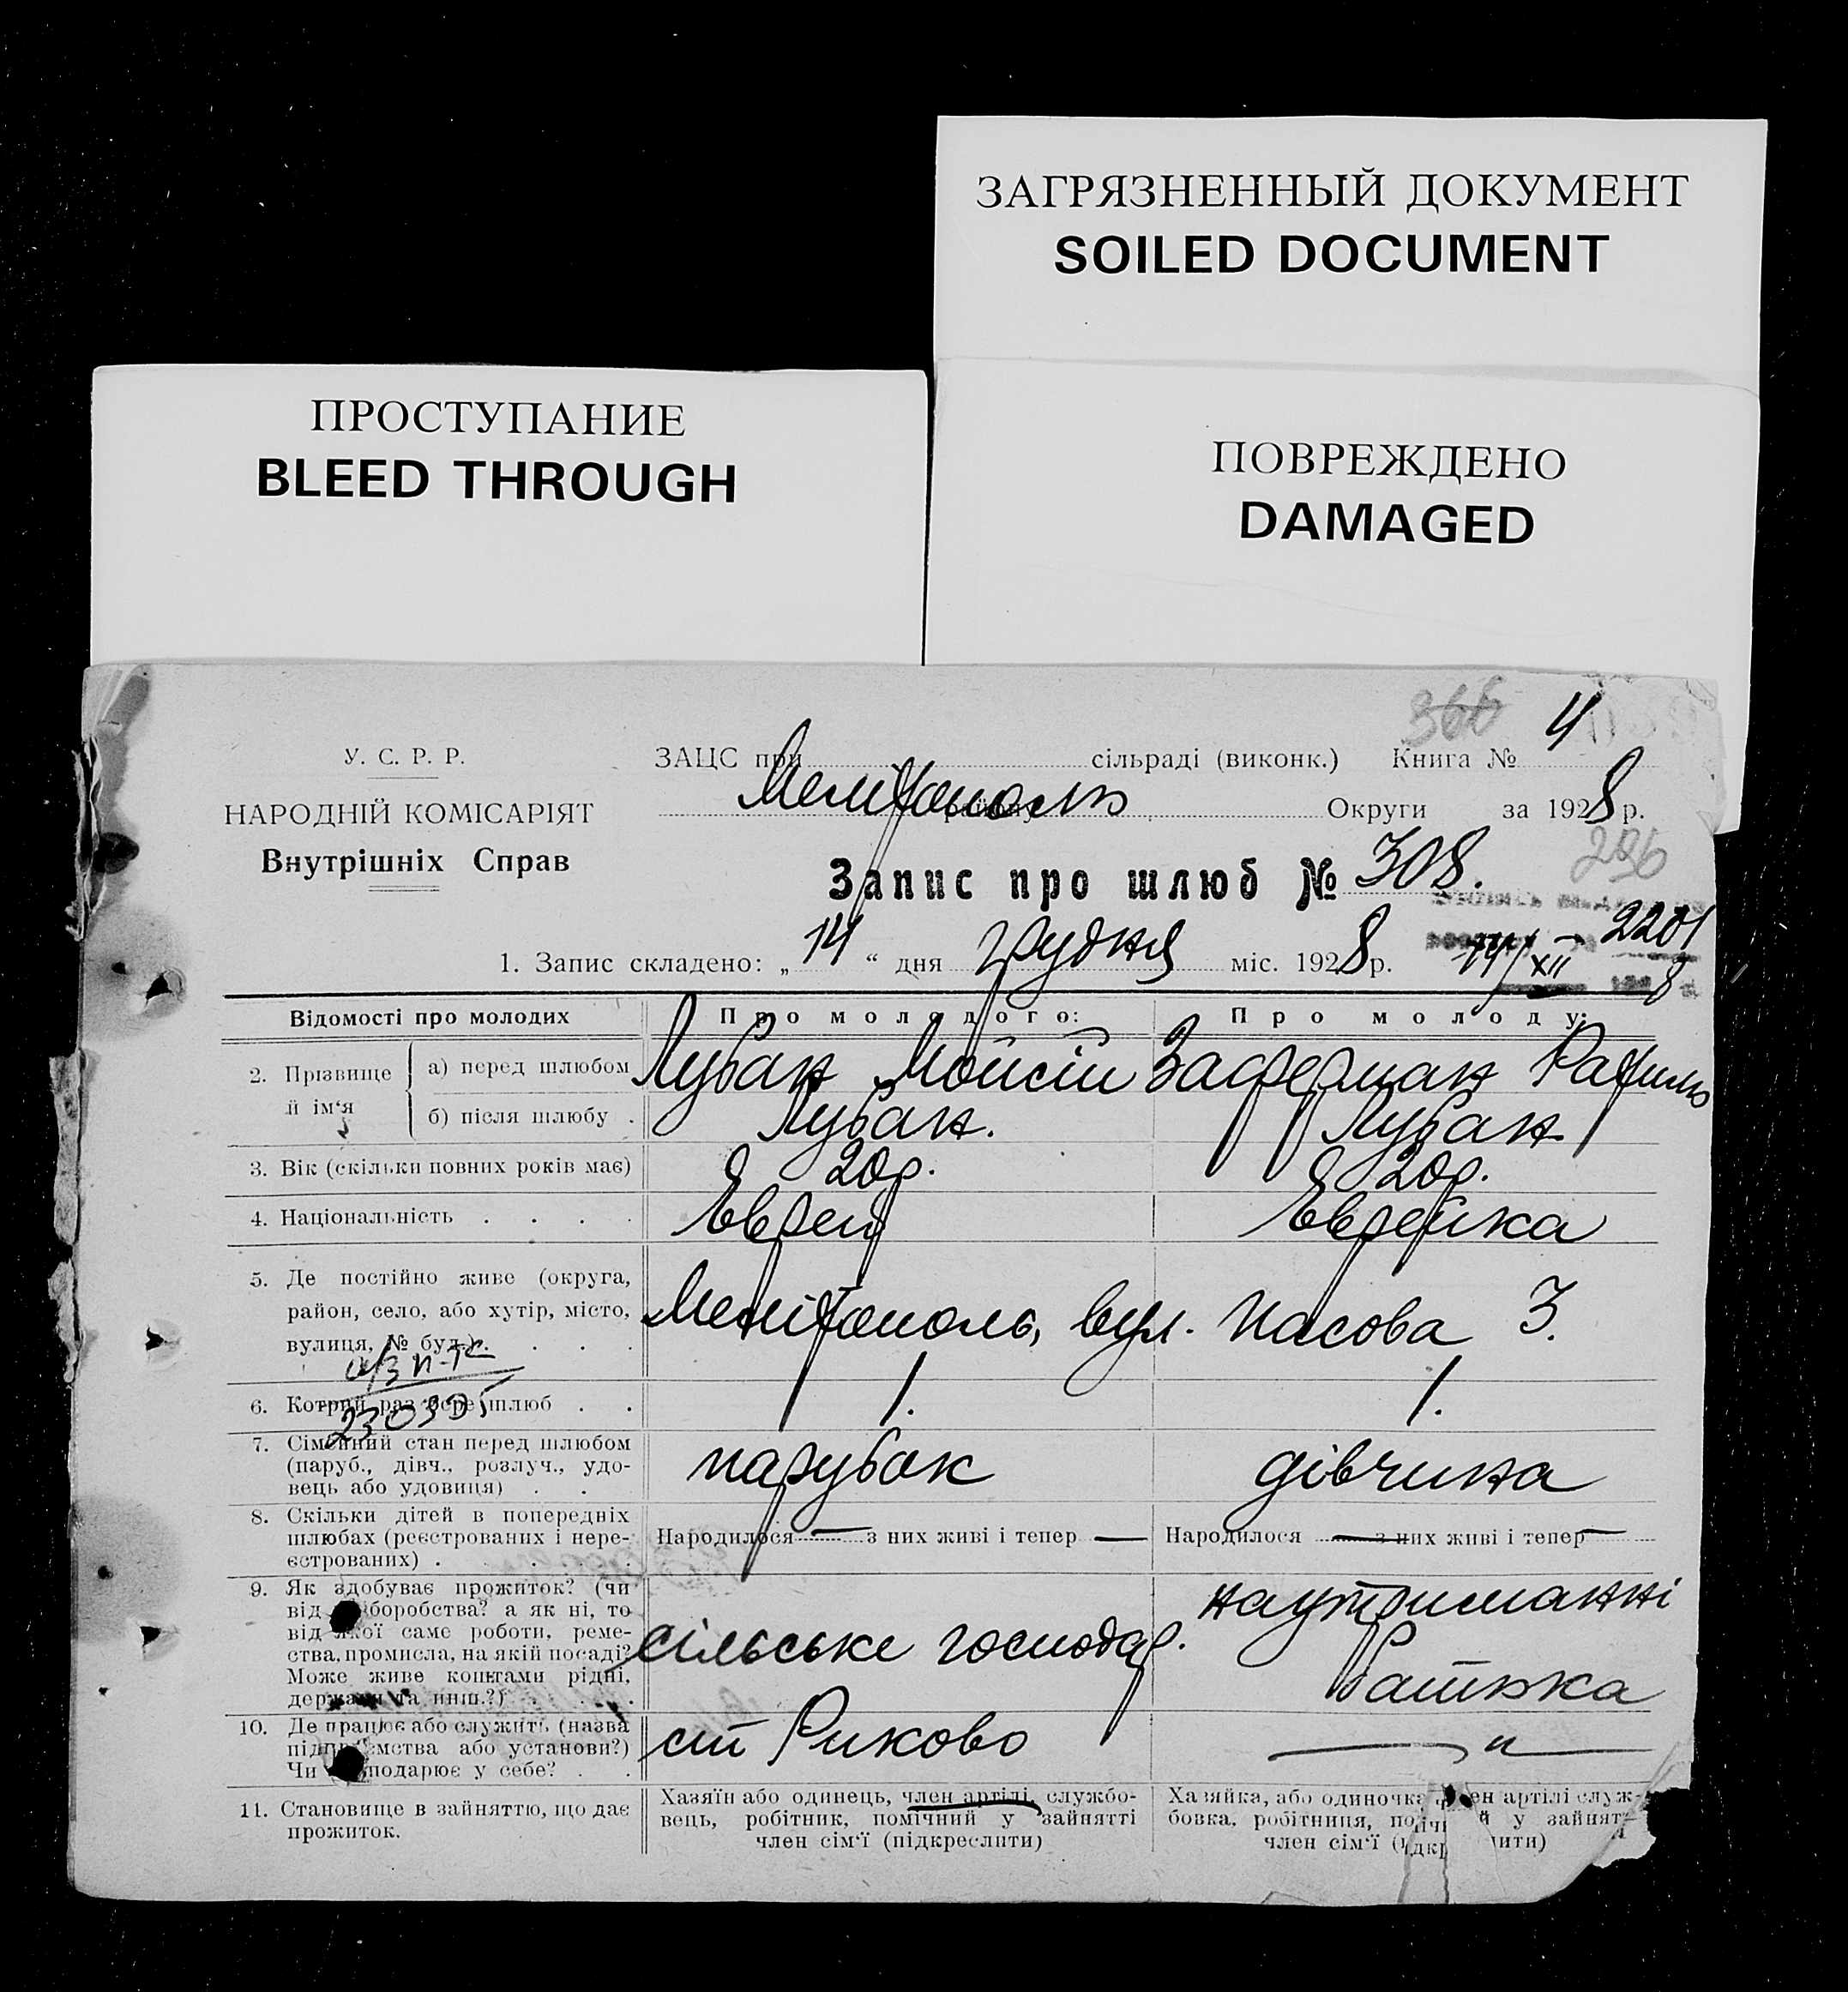 ЗАГРЯЗНЕННЫЙ ДОКУМЕНТ
SOILED DOCUMENT
ПРОСТУПАНИЕ
BLEED THROUGH
ПОВРЕЖДЕНО
DAMAGED
366
У. С. Р. Р.
ЗАЦС при сільраді (виконк.) Книга № 4
НАРОДНІЙ КОМІСАРІЯТ
Внутрішніх Справ
Мелітополь району Округи за 1928 р.
Запис про шлюб № 308.
296
1. Запис складено: „ 14 “ дня грудня міс. 1928 р. 14/XII – 2201
8
Відомості про молодих Про молодого: Про молоду:
2. Прізвище й ім‘я
а) перед шлюбом Лубан Мойсій Заферман Рахиль
б) після шлюбу . Лубан. Лубан
3. Вік (скільки повних років має) 20р. 20р.
4. Національність . . . . Єврей Єврейка
5. Де постійно живе (округа,
район, село, або хутір, місто,
вулиця, № буд.). . . .
Мелітополь, вул. Касова 3.
23035
6. Котрий раз бере шлюб . . 1. 1.
7. Сімейний стан перед шлюбом
(паруб., дівч., розлуч., удо-
вець або удовиця) . .
парубок дівчина
8. Скільки дітей в попередніх
шлюбах (реєстрованих і нере-
єстрованих) .
Народилося — з них живі і тепер — Народилося — з них живі і тепер —
9. Як здобуває прожиток? (чи
від боробства? а як ні, то
від якої саме роботи, реме-
ства, промисла, на якій посаді?
Може живе коштами рідні,
держави та инш.?)
сільське господар. на утриманні
батька
10. Де працює або служить (назва
підприємства або установи?)
Чи господарює у себе? . .
ст Риково — „ —
11. Становище в зайняттю, що дає
прожиток.
Хазяїн або одинець, член артілі, службо-
вець, робітник, помічний у зайнятті
член сім‘ї (підкреслити)
Хазяйка, або одиночка член артілі служ-
бовка, робітниця, у зайнят-
член сім‘ї